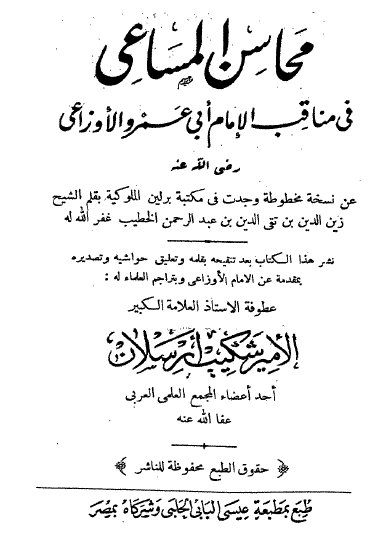 محاسن المساعى
فى مناقب الإمام أبى عمرو الأوزاعى
رضى الله عنه
عن نسخة مخطوطة وجدت فى مكتبة برلين الملوكية بقلم الشيخ
زين الدين بن تقى الدين بن عبد الرحمن الخطيب غفر الله له
نشر هذا الكتاب بعد تنقيحه بقلمه وتعليق حواشيه وتصديره
بمقدمة عن الامام الأوزاعى وبتراجم العلماء له :
عطوفة الاستاذ العلامة الكبير
الأمير شكيب أرسلان
أحد أعضاء المجمع العلمى العربى
عفا الله عنه
حقوق الطبع محفوظة للناشر
طبع بمطبعة عيسى البابى الحلبى وشركاه بمصر